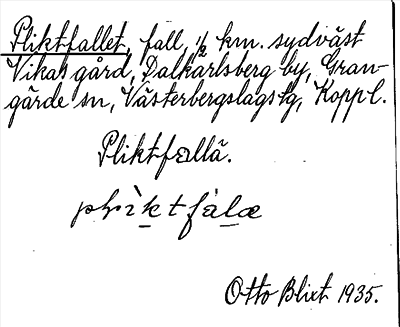 Pliktfallet, fall, ½ km. sydväst
Vikas gård, Dalkarlsberg by, Gran-
gärde sn, Västerbergslags tg, Koppl.
Pliktfallä.
Otto Blixt 1935.